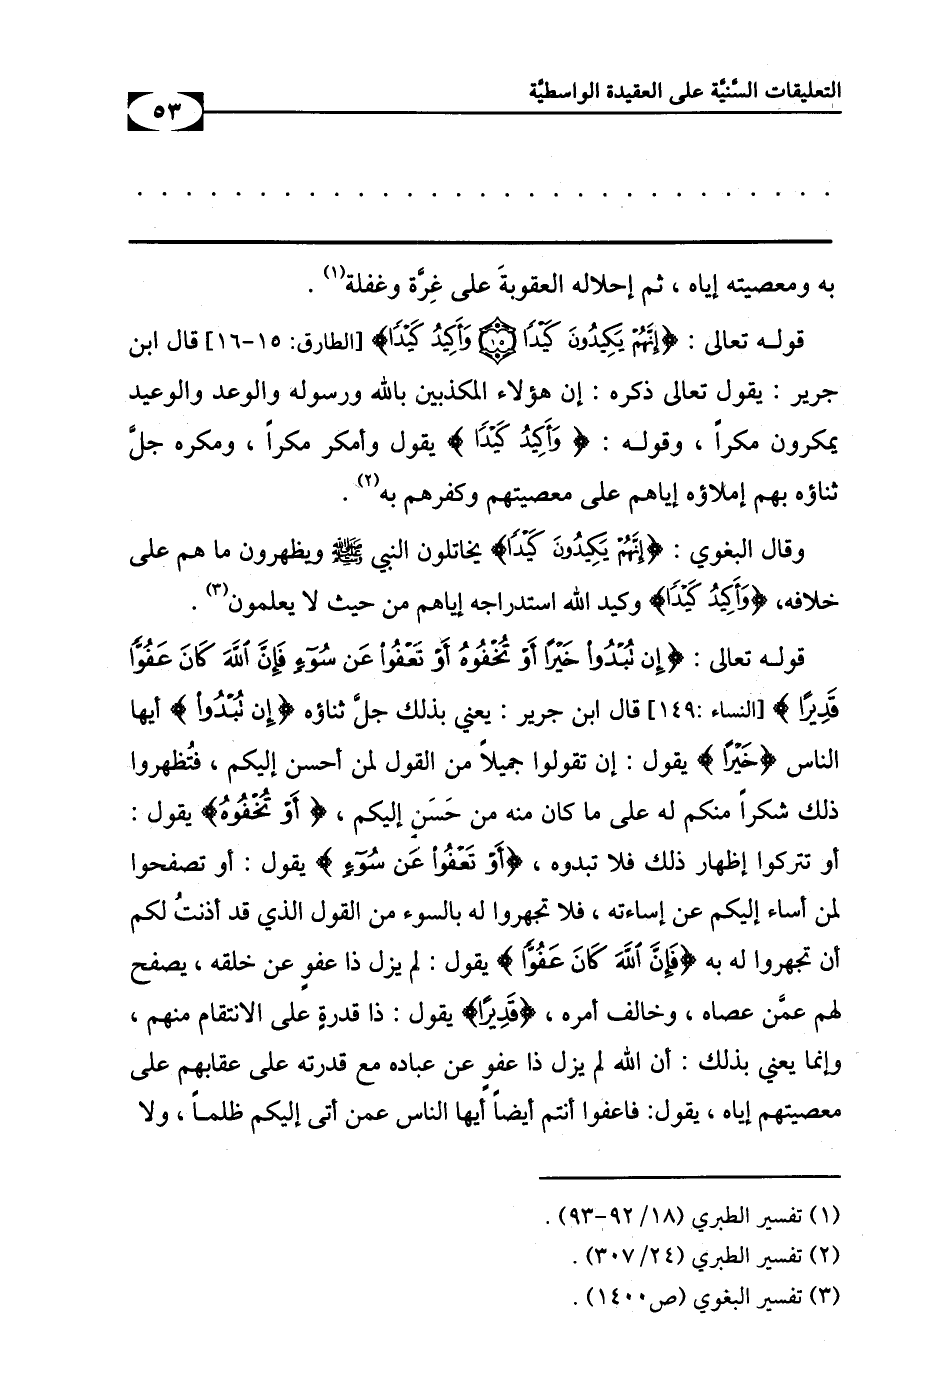 التعليقات السَّنيَّة على العقيدة الواسطيَّة
٥٣
. . . . . . . . . . . . . . . . . . . . . . . . . . . . .
به ومعصيته إياه ، ثم إحلاله العقوبةَ على غِرَّة وغفلة(١) .
قولـه تعالى : ﴿إِنَّهُمْ يَكِيدُونَ كَيْدًا ۝١٥ وَأَكِيدُ كَيْدًا﴾ [الطارق: ١٥-١٦] قال ابن
جرير : يقول تعالى ذكره : إن هؤلاء المكذبين بالله ورسوله والوعد والوعيد
يمكرون مكراً ، وقولـه : ﴿ وَأَكِيدُ كَيْدًا ﴾ يقول وأمكر مكراً ، ومكره جلَّ
ثناؤه بهم إملاؤه إياهم على معصيتهم وكفرهم به(٢) .
وقال البغوي : ﴿إِنَّهُمْ يَكِيدُونَ كَيْدًا﴾ يخاتلون النبي ﷺ ويظهرون ما هم على
خلافه، ﴿وَأَكِيدُ كَيْدًا﴾ وكيد الله استدراجه إياهم من حيث لا يعلمون(٣) .
قولـه تعالى : ﴿إِن تُبْدُوا خَيْرًا أَوْ تُخْفُوهُ أَوْ تَعْفُوا عَن سُوٓءٍ فَإِنَّ ٱللَّهَ كَانَ عَفُوًّا
قَدِيرًا ﴾ [النساء :١٤٩] قال ابن جرير : يعني بذلك جلَّ ثناؤه ﴿إِن تُبْدُوا ﴾ أيها
الناس ﴿خَيْرًا ﴾ يقول : إن تقولوا جميلاً من القول لمن أحسن إليكم ، فتُظهروا
ذلك شكراً منكم له على ما كان منه من حَسَنٍ إليكم ، ﴿ أَوْ تُخْفُوهُ﴾ يقول :
أو تتركوا إظهار ذلك فلا تبدوه ، ﴿أَوْ تَعْفُوا عَن سُوٓءٍ ﴾ يقول : أو تصفحوا
لمن أساء إليكم عن إساءته ، فلا تجهروا له بالسوء من القول الذي قد أذنتُ لكم
أن تجهروا له به ﴿فَإِنَّ ٱللَّهَ كَانَ عَفُوًّا ﴾ يقول : لم يزل ذا عفوٍ عن خلقه ، يصفح
لهم عمَّن عصاه ، وخالف أمره ، ﴿قَدِيرًا﴾ يقول : ذا قدرةٍ على الانتقام منهم ،
وإنما يعني بذلك : أن الله لم يزل ذا عفوٍ عن عباده مع قدرته على عقابهم على
معصيتهم إياه ، يقول: فاعفوا أنتم أيضاً أيها الناس عمن أتى إليكم ظلمـاً ، ولا
(١) تفسير الطبري (١٨/ ٩٢-٩٣) .
(٢) تفسير الطبري (٢٤/ ٣٠٧) .
(٣) تفسير البغوي (ص١٤٠٠) .